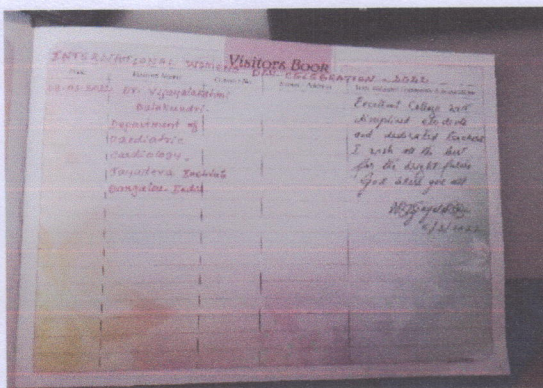 Visitors Book
INTERNATIONAL WOMENS DAY CELEBRATION - 2022
Date Visitor Name Contact No.
Dr. Vijayalakshmi
Balekundri
Department of
Paediatric
Cardiology
Jayadeva Institute
Bangalore India
Excellent College with
disciplined students
and dedicated teachers
I wish all the best
for the bright future
God bless you all